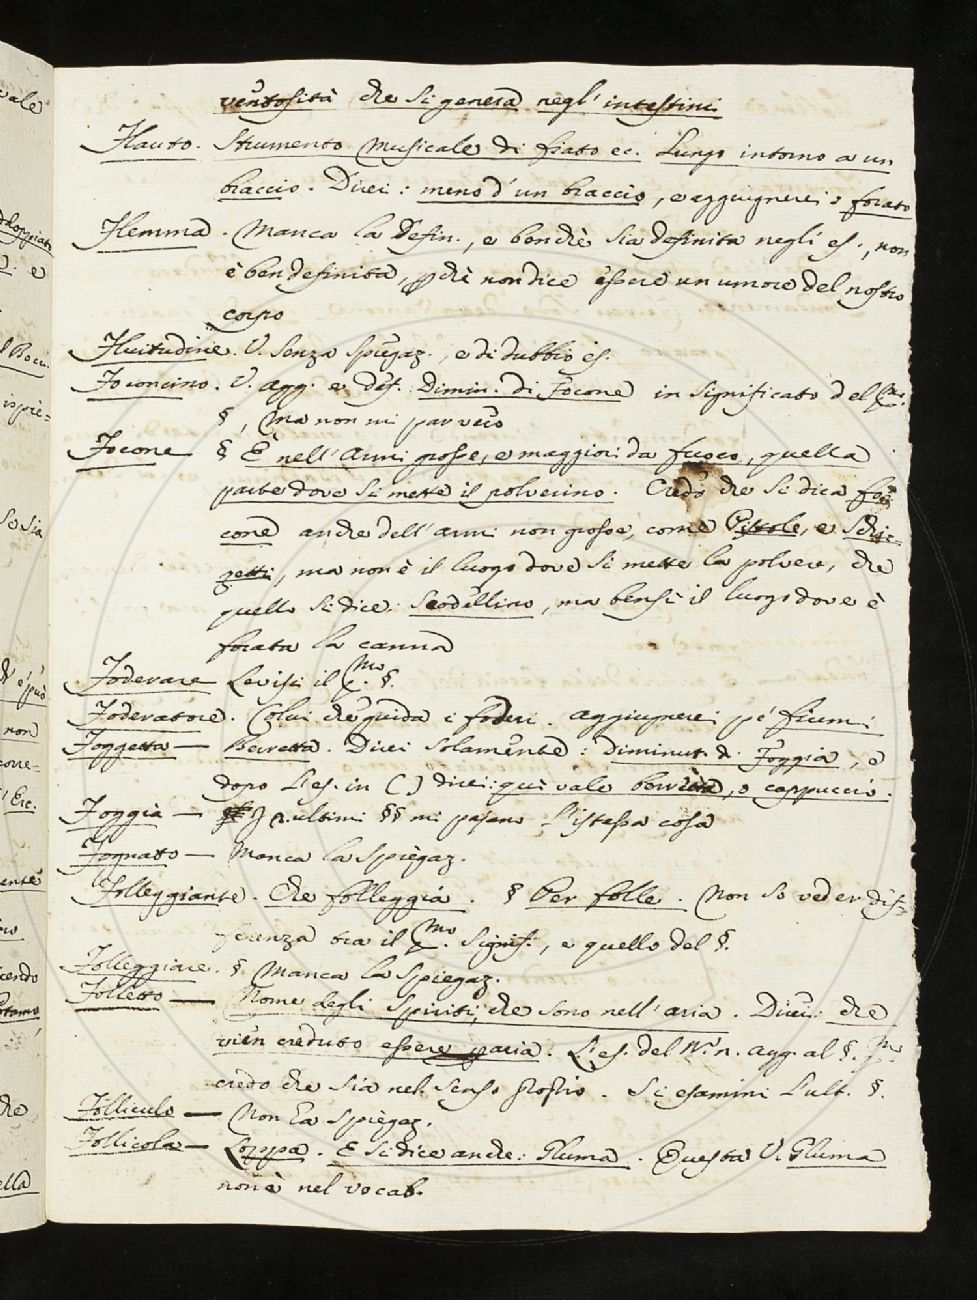 ventosità che si genera negl' intestini
Flauto. Strumento Musicale di fiato ec. Lungo intorno a un
braccio. Direi: meno d' un braccio, e aggiugnerei: forato
Flemma. Manca la Defin., e benchè sia definita negli es., non
è ben definita, perchè non dice essere un umore del nostro
corpo
Fluitudine. V. senza spiegaz., e di dubbio es.
Foconcino. V. agg. e def. Dimin. di Focone in significato del Pmo.
§, Ma non mi par vero
Focone § È nell' Armi grosse, e maggiori da fuoco, quella
parte dove si mette il polverino. Credo che si dica fo=
cone anche dell' armi non grosse, come Pistole, e Schi=
zetti, ma non è il luogo dove si mette la polvere, che
quello si dice: Scodellino, ma bensì il luogo dove è
forata la canna
Foderare Levisi il Pmo. §.
Foderatore. Colui che guida i foderi. Aggiugnerei pe' fiumi
Foggetta — Berretta. Direi solamente: Diminut. di Foggia, e
dopo l' es. in ( ) direi: qui vale berretta, o cappuccio.
Foggia — I 2. ultimi §§ mi pajano l' istessa cosa
Fognato — Manca la spiegaz.
Folleggiante. Che folleggia. § Per folle. Non so veder dif=
ferenza tra il Pmo. signif., e quello del §.
Folleggiare. § Manca la spiegaz.
Folletto — Nome degli Spiriti, che sono nell' aria. Direi: che
vien creduto essere aria. L' es. del N. n. agg. al §. Pmo
credo che sia nel senso nostro. Si esamini l' ult. §.
Folliculo — Non ha spiegaz.
Follicola — Loppa. E si dice anche: Gluma. Questa V. Gluma
non è nel vocab.
vale